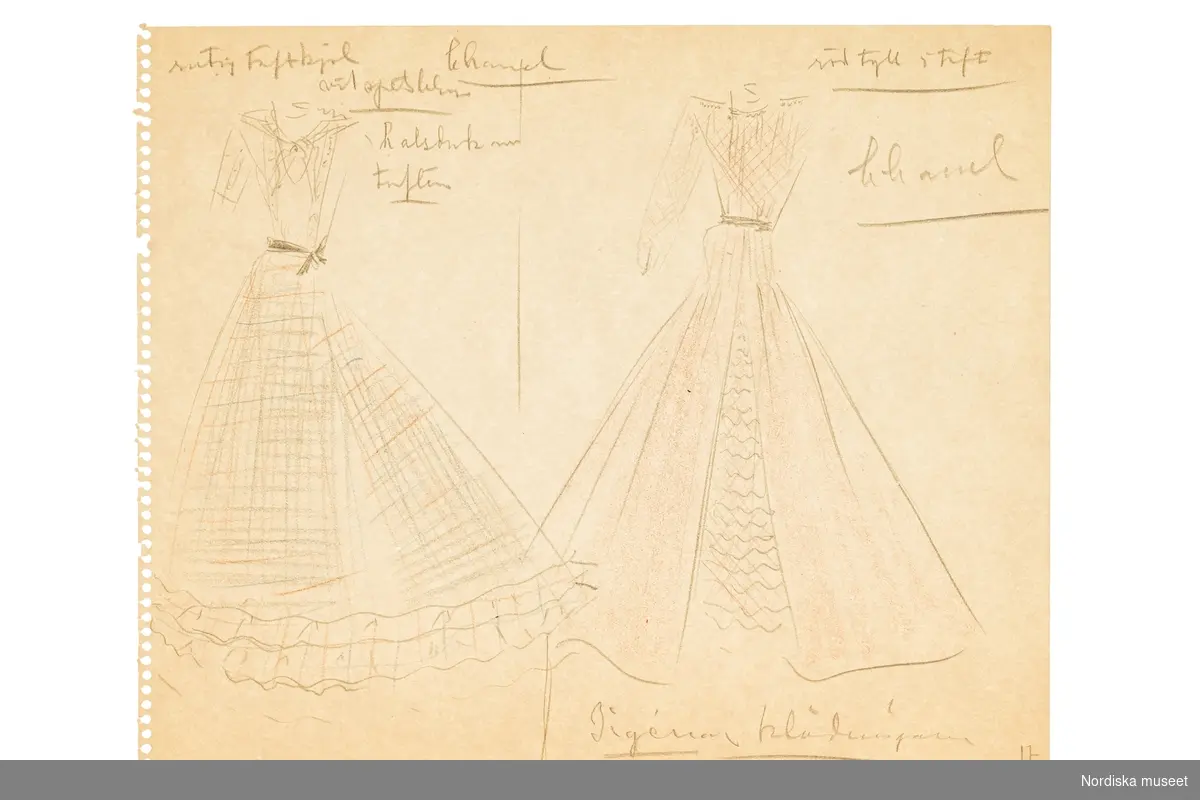 rutig taftkjol
vit spetsblus
Chanel
halsduk av
taften
röd tyll i taft
Chanel
klädningar
17
Nordiska museet